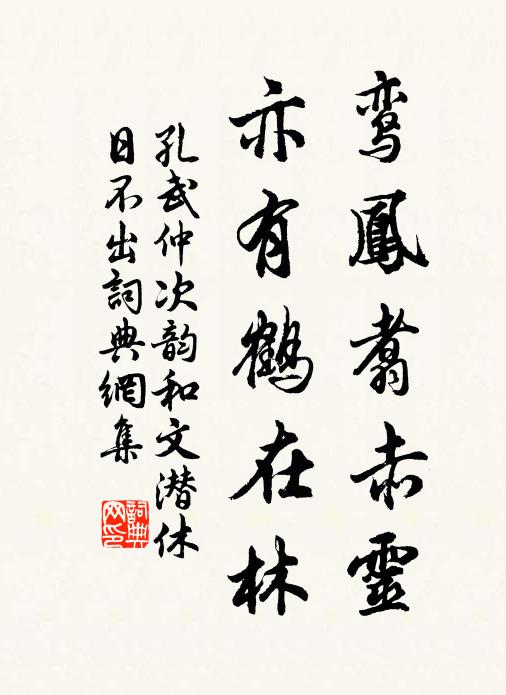 鸾鳳翥赤靈
亦有鶴在林
孔武仲次韵和文潜休
日不出詞典網集
詞典
网印